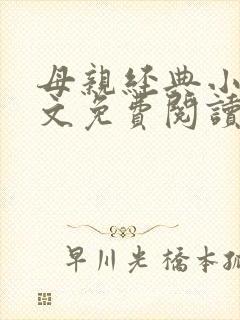 母親經典小
文免費閱讀
早川光 橋本孤